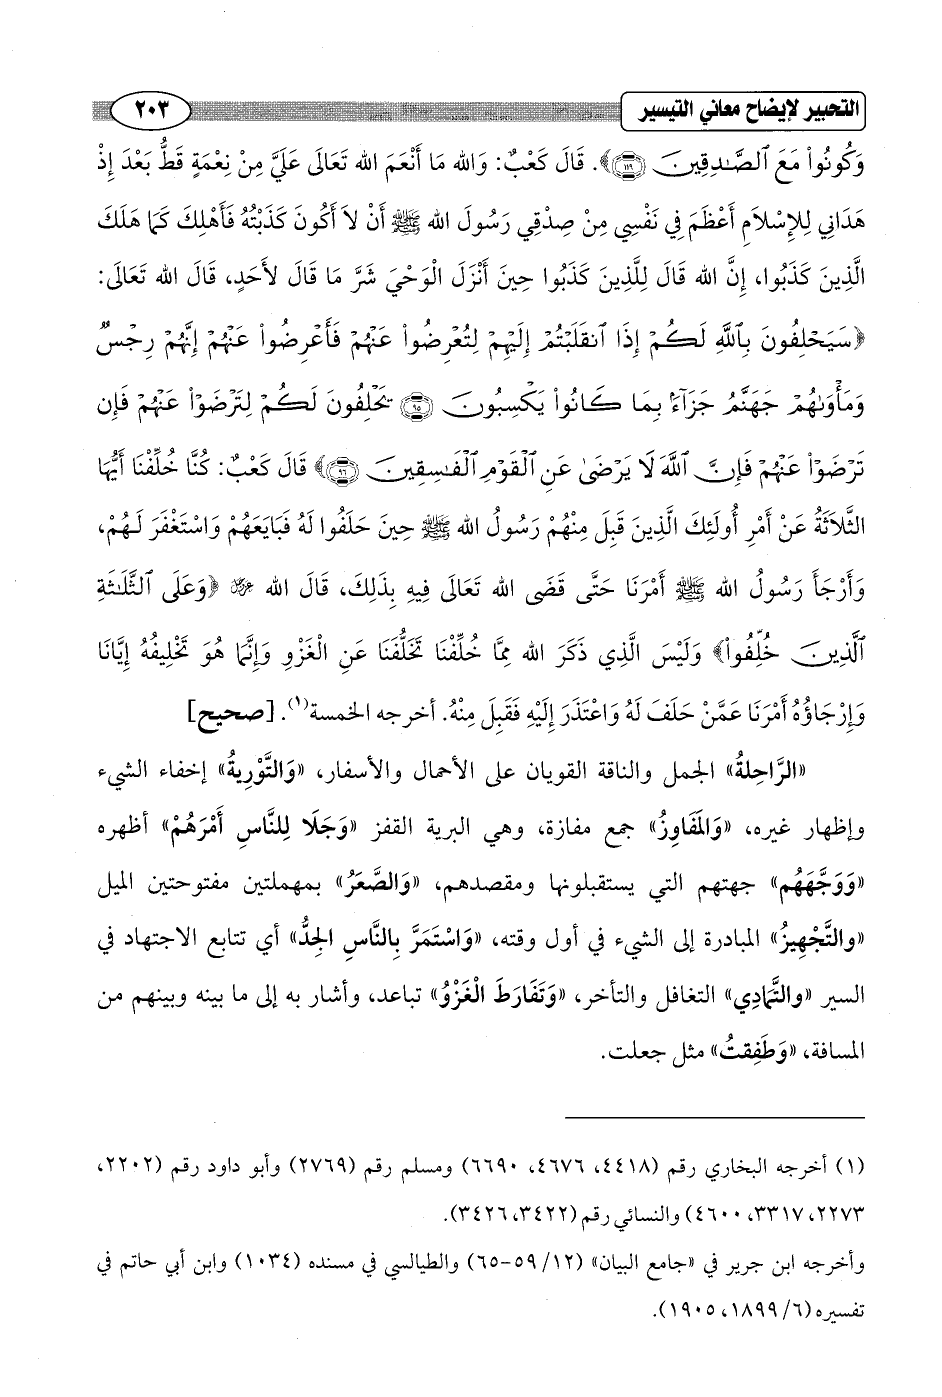 التحبير لإيضاح معاني التيسير
٢٠٣
وَكُونُوا۟ مَعَ ٱلصَّـٰدِقِينَ ﴿١١٩﴾﴾. قَالَ كَعْبٌ: وَالله مَا أَنْعَمَ الله تَعَالَى عَلَيَّ مِنْ نِعْمَةٍ قَطُّ بَعْدَ إِذْ
هَدَانِي لِلإِسْلاَمِ أَعْظَمَ فِي نَفْسِي مِنْ صِدْقِي رَسُولَ الله ﷺ أَنْ لاَ أَكُونَ كَذَبْتُهُ فَأَهْلِكَ كَمَا هَلَكَ
الَّذِينَ كَذَبُوا، إِنَّ الله قَالَ لِلَّذِينَ كَذَبُوا حِينَ أَنْزَلَ الْوَحْيَ شَرَّ مَا قَالَ لأَحَدٍ، قَالَ الله تَعَالَى:
﴿سَيَحْلِفُونَ بِٱللَّهِ لَكُمْ إِذَا ٱنقَلَبْتُمْ إِلَيْهِمْ لِتُعْرِضُوا۟ عَنْهُمْ فَأَعْرِضُوا۟ عَنْهُمْ إِنَّهُمْ رِجْسٌ
وَمَأْوَىٰهُمْ جَهَنَّمُ جَزَآءًۢ بِمَا كَانُوا۟ يَكْسِبُونَ ﴿٩٥﴾ يَحْلِفُونَ لَكُمْ لِتَرْضَوْا۟ عَنْهُمْ فَإِن
تَرْضَوْا۟ عَنْهُمْ فَإِنَّ ٱللَّهَ لَا يَرْضَىٰ عَنِ ٱلْقَوْمِ ٱلْفَـٰسِقِينَ ﴿٩٦﴾﴾ قَالَ كَعْبٌ: كُنَّا خُلِّفْنَا أَيُّهَا
الثَّلاَثَةُ عَنْ أَمْرِ أُولَئِكَ الَّذِينَ قَبِلَ مِنْهُمْ رَسُولُ الله ﷺ حِينَ حَلَفُوا لَهُ فَبَايَعَهُمْ وَاسْتَغْفَرَ لَـهُمْ،
وَأَرْجَأَ رَسُولُ الله ﷺ أَمْرَنَا حَتَّى قَضَى الله تَعَالَى فِيهِ بِذَلِكَ، قَالَ الله عز وجل ﴿وَعَلَى ٱلثَّلَـٰثَةِ
ٱلَّذِينَ خُلِّفُوا۟﴾ وَلَيْسَ الَّذِي ذَكَرَ الله مِمَّا خُلِّفْنَا تَخَلُّفَنَا عَنِ الْغَزْوِ وَإِنَّمَا هُوَ تَخْلِيفُهُ إِيَّانَا
وَإِرْجَاؤُهُ أَمْرَنَا عَمَّنْ حَلَفَ لَهُ وَاعْتَذَرَ إِلَيْهِ فَقَبِلَ مِنْهُ. أخرجه الخمسة(١). [صحيح]
«الرَّاحِلةُ» الجمل والناقة القويان على الأحمال والأسفار، «وَالتَّوْريةُ» إخفاء الشيء
وإظهار غيره، «وَالمَفَاوِزُ» جمع مفازة، وهي البرية القفز «وَجَلَا لِلنَّاسِ أَمْرَهُمْ» أظهره
«وَوَجَّهَهُم» جهتهم التي يستقبلونها ومقصدهم، «وَالصَّعَرُ» بمهملتين مفتوحتين الميل
«والتَّجْهِيزُ» المبادرة إلى الشيء في أول وقته، «وَاسْتَمَرَّ بِالنَّاسِ الجِدُّ» أي تتابع الاجتهاد في
السير «والتَّمَادِي» التغافل والتأخر، «وَتَفَارَطَ الْغَزْوُ» تباعد، وأشار به إلى ما بينه وبينهم من
المسافة، «وَطَفِقتُ» مثل جعلت.
(١) أخرجه البخاري رقم (٤٤١٨، ٤٦٧٦، ٦٦٩٠) ومسلم رقم (٢٧٦٩) وأبو داود رقم (٢٢٠٢،
٢٢٧٣، ٣٣١٧، ٤٦٠٠) والنسائي رقم (٣٤٢٢، ٣٤٢٦).
وأخرجه ابن جرير في «جامع البيان» (١٢/ ٥٩-٦٥) والطيالسي في مسنده (١٠٣٤) وابن أبي حاتم في
تفسيره (٦/ ١٨٩٩، ١٩٠٥).